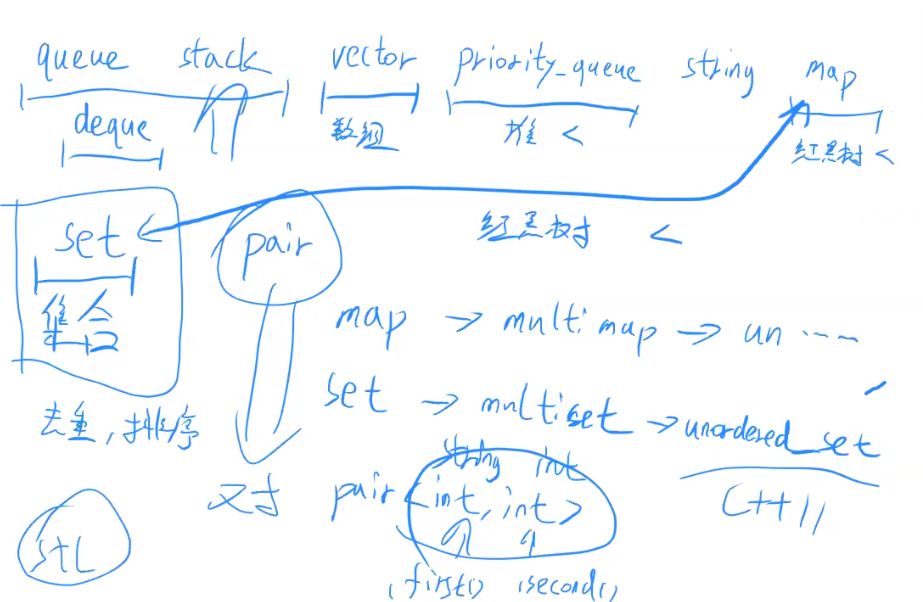 queue stack vector priority_queue string map
deque 数组 堆 < 红黑树 <
set pair 红黑树 <
集合
map → multimap → un ······
set → multiset → unordered_set
去重,排序
string int
对 pair <int, int> C++11
stl
.first() .second()